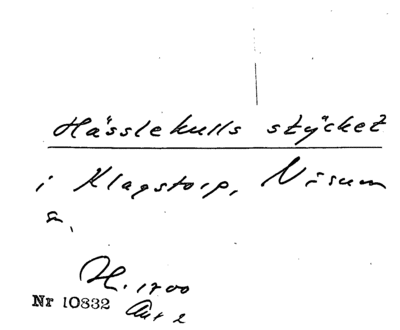 Hässlekulls stycket
i Klagstorp, Visum
s.
H. 1700
Nr 10832 Akt 2